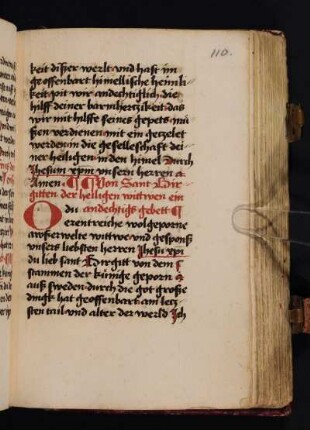 110.
keit dißer werlt vnd hast im
geoffenbart himellische heimli
keit pit wir andechtiglich die
hilff deiner barmhertzikeit das
wir mit hilffe seines gepets mü
ßen verdienen mit ein getzelet
werden in die geselleschafft dei
ner heiligen in den himel durch
Jhesum xpm vnsern herren a
Amen. ¶ ¶ Von Sant Bir
gitten der heiligen witwen ein
O du andechtigs gebett ¶
Ezentreiche wolgeporne
außerwelte wittwe vnd gesponß
vnsers liebsten herren Jhesu xpi
du lieb sant Birgitt von dem
stammen der künige geporn
auß sweden durch die got große
dingk hat geoffenbart am letz
sten tail vnd alter der werld Ich